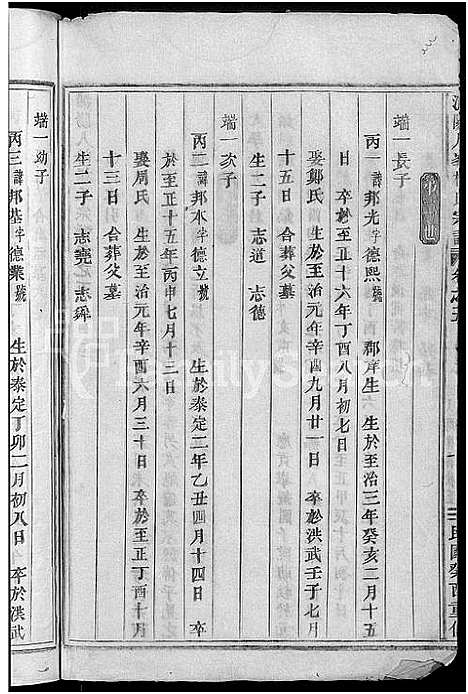 端一長子
丙一 諱邦光字德熙號 郡庠生 生於至治三年癸亥二月十五
日 卒於至正十六年丁酉八月初七日
娶鄭氏 生於至治元年辛酉九月廿一日 卒於洪武壬子七月
十五日合葬父墓
生二子 志道 志德
端一次子
丙二 諱邦本字德立號 生於泰定二年乙丑四月十四日 卒
於至正十五年丙申七月十三日
娶周氏 生於至治元年辛酉六月三十日 卒於至正丁酉十月
十三日引合葬父墓
生二子 志堯 志舜
端一幼子
丙三 諱邦基字德業號 生於泰定丁卯二月初八日 卒於洪武